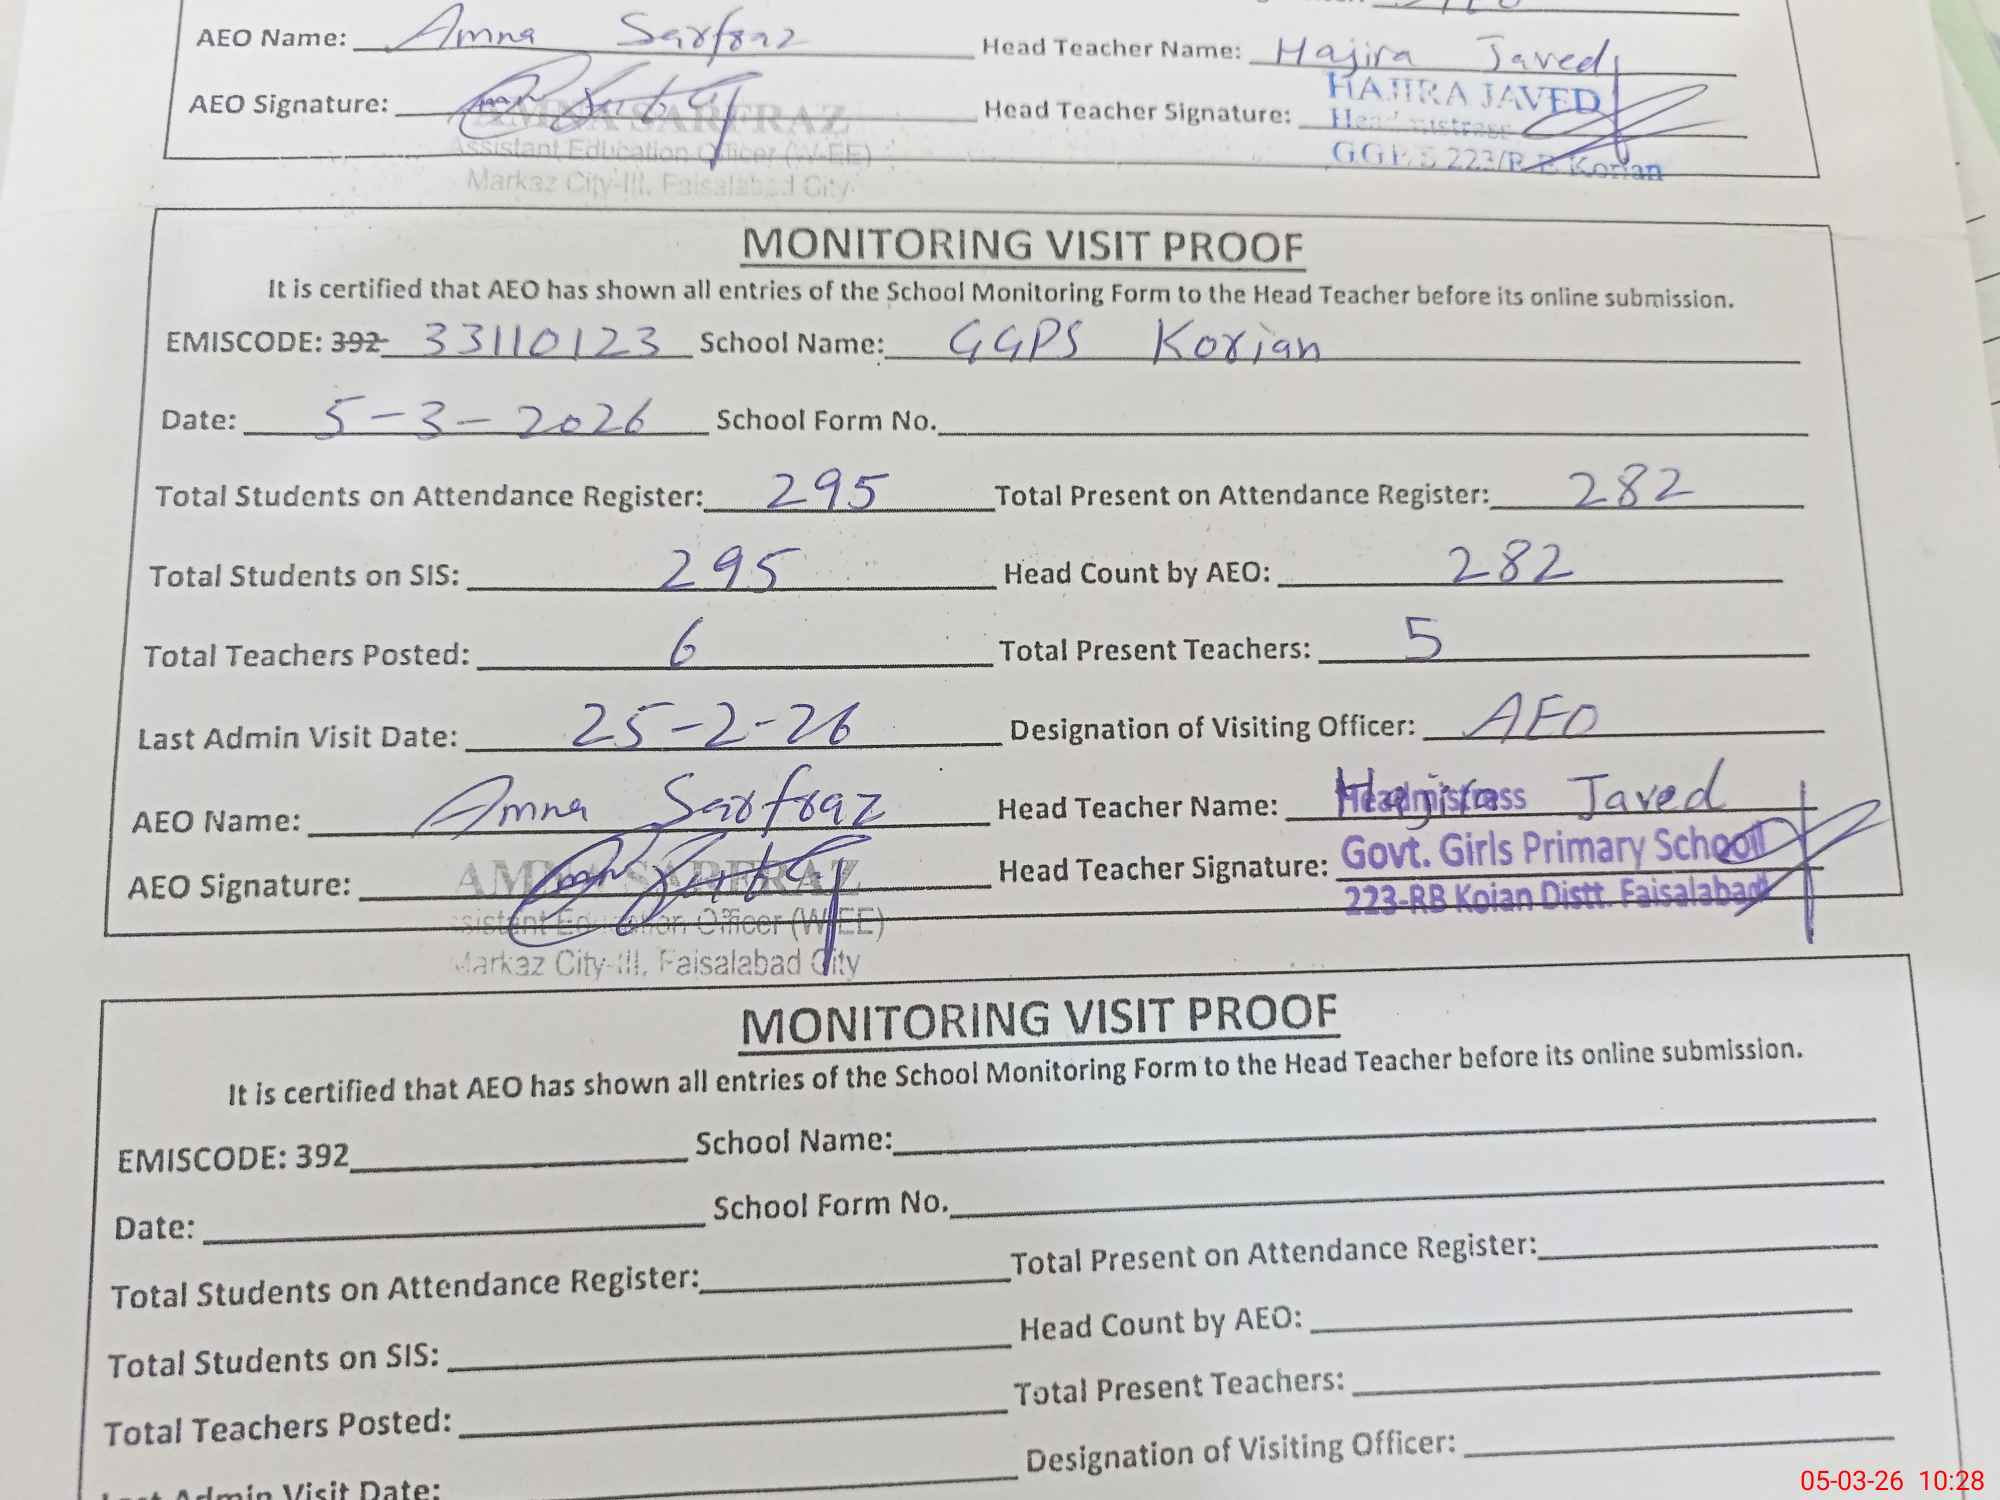 AEO Name: Amna Sarfraz Head Teacher Name: Hajira Javed
AEO Signature: AMNA SARFRAZ Head Teacher Signature: HAJIRA JAVED
Assistant Education Officer (W-EE) Headmistress
Markaz City-III, Faisalabad City GGPS 223/RB Korian
MONITORING VISIT PROOF
It is certified that AEO has shown all entries of the School Monitoring Form to the Head Teacher before its online submission.
EMISCODE: 392 33110123 School Name: GGPS Korian
Date: 5-3-2026 School Form No.
Total Students on Attendance Register: 295 Total Present on Attendance Register: 282
Total Students on SIS: 295 Head Count by AEO: 282
Total Teachers Posted: 6 Total Present Teachers: 5
Last Admin Visit Date: 25-2-26 Designation of Visiting Officer: AEO
AEO Name: Amna Sarfraz Head Teacher Name: Hajira Javed
Headmistress
AEO Signature: AMNA SARFRAZ Head Teacher Signature: Govt. Girls Primary School
Assistant Education Officer (W-EE) 223-RB Koian Distt. Faisalabad
Markaz City-III, Faisalabad City
MONITORING VISIT PROOF
It is certified that AEO has shown all entries of the School Monitoring Form to the Head Teacher before its online submission.
EMISCODE: 392 School Name:
Date: School Form No.
Total Students on Attendance Register: Total Present on Attendance Register:
Total Students on SIS: Head Count by AEO:
Total Teachers Posted: Total Present Teachers:
Last Admin Visit Date: Designation of Visiting Officer:
05-03-26 10:28